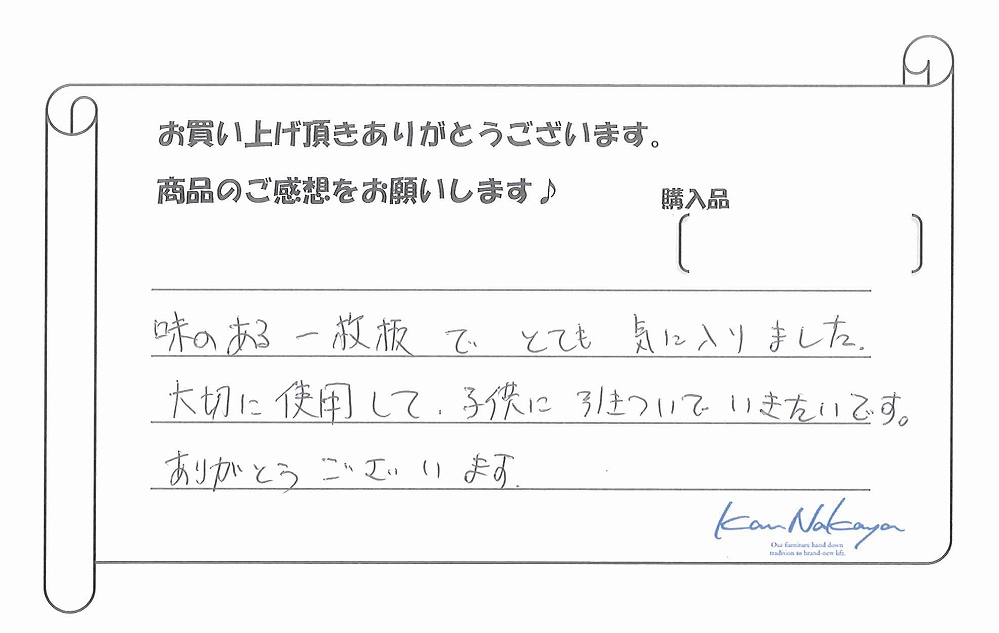 お買い上げ頂きありがとうございます。
商品のご感想をお願いします♪
購入品
味のある一枚板で とても 気に入りました.
大切に使用して、子供に引きついでいきたいです。
ありがとうございます.
Kan Nakaya
Our furniture hand down
tradition to brand-new life.